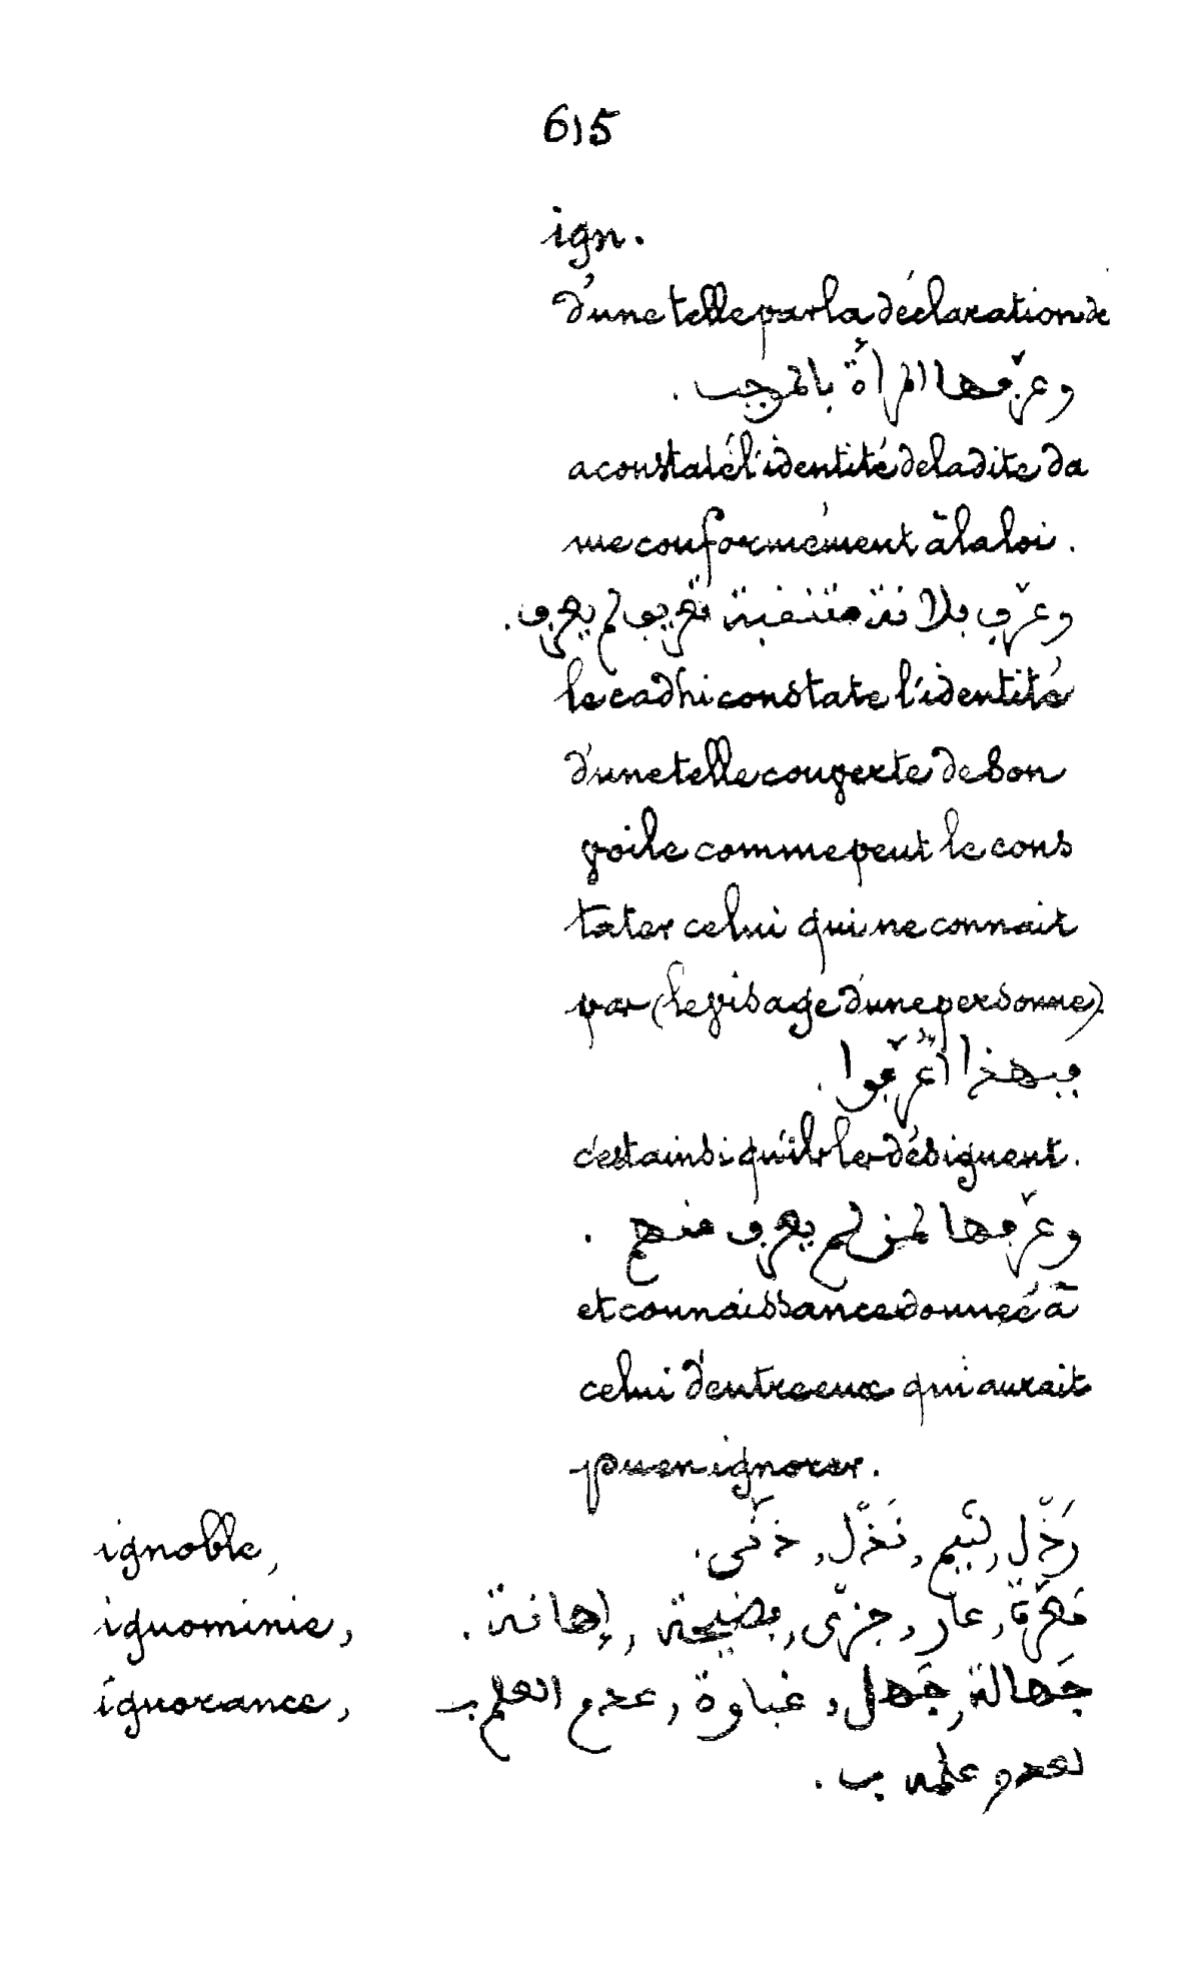 615
ign.
d'une telle par la déclaration de
وعرّفها المرأة بالموجب.
a constaté l'identité de la dite da
me conformément à la loi.
وعرّف بفلانة متنقبة تعريف لم يعرف.
le cadhi constate l'identité
d'une telle couverte de son
voile comme peut le cons
tater celui qui ne connait
par (le visage d'une personne).
فبهذا اعرّفوا.
c'est ainsi qu'ils les désignent.
وعرّفها لمن لم يعرف منهم.
et connaissance donnée à
celui d'entre eux qui aurait
pu en ignorer.
ignoble, رَذّل, لئيم, نَذّل,
ignominie, مَعرّة, عار, فضيحة, إهانة.
ignorance, جَهالة, جَهل, غباوة, عدم العلم بـ
لعدم علمه بـ.